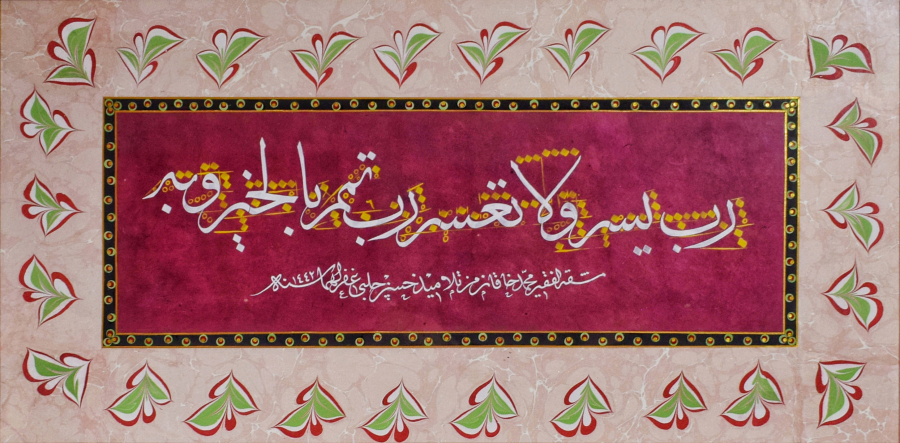 رب يسر ولا تعسر رب تمم بالخير وبه
مشقه الفقير محمد خاقان من تلاميذ حسن چلبي غفر لهما سنه ١٤٤٢